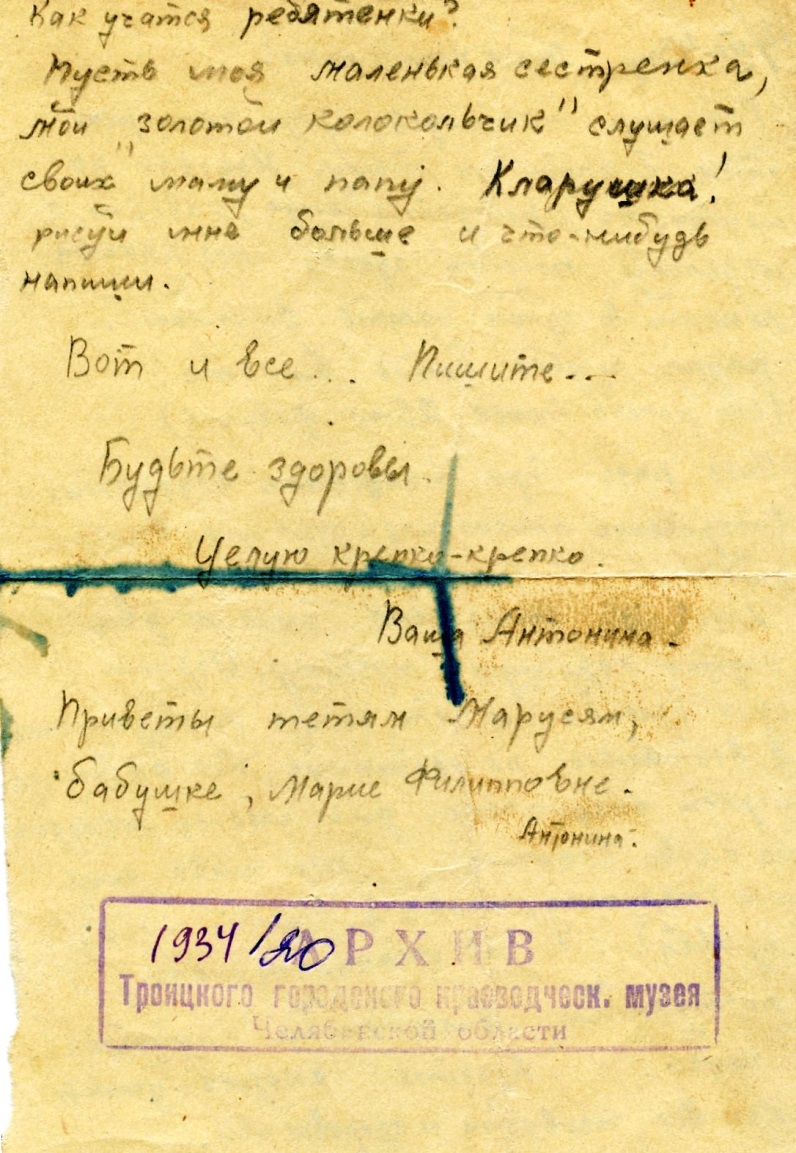 Как учатся ребятенки?
Пусть моя маленькая сестренка,
мой "золотой колокольчик" слушает
своих маму и папу. Кларушка!
рисуй мне больше и что-нибудь
напиши.
Вот и все... Пишите...
Будьте здоровы.
Целую крепко-крепко.
Ваша Антонина.
Приветы тетям Марусям,
бабушке, Марие Филипповне.
Антонина.
1934/20 АРХИВ
Троицкого городского краеведческ. музея
Челябинской области